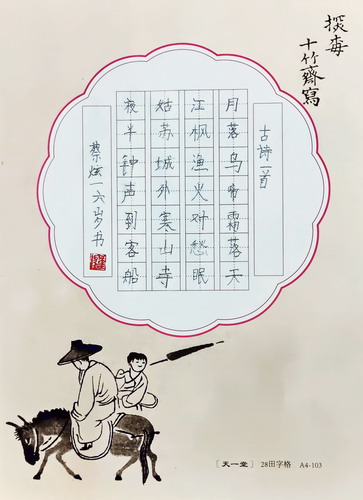 十竹齋寫
古诗一首
月落乌啼霜落天
江枫渔火对愁眠
姑苏城外寒山寺
夜半钟声到客船
蔡炫一六岁书
[天一堂] 28田字格 A4-103